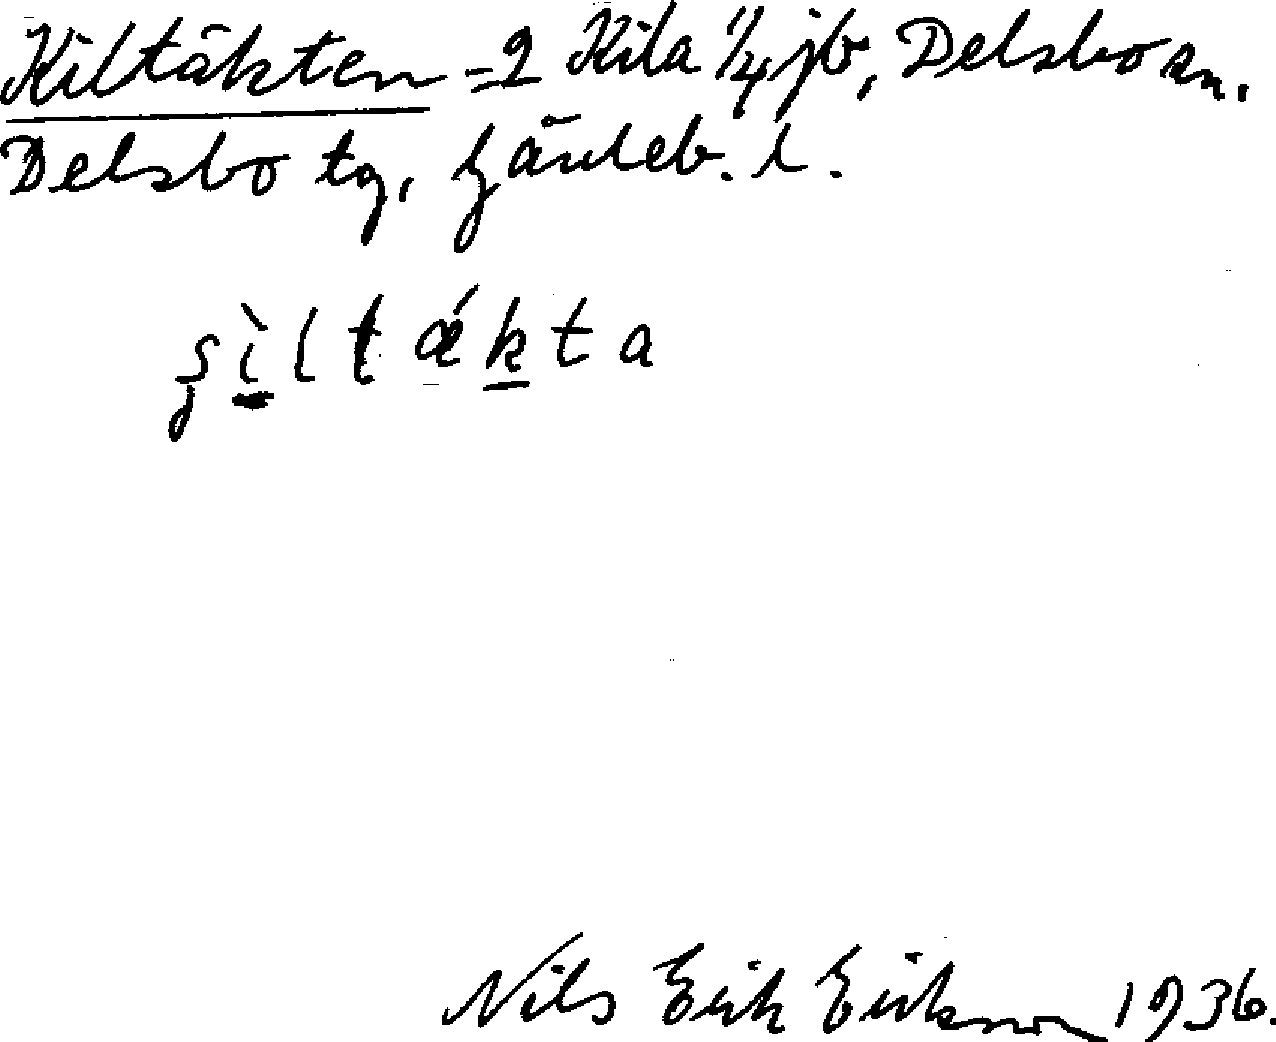 Kiltäkten = 2 Kila 1/4 jb, Delsbo sn.
Delsbo tg, Gävleb. l.
şìltǽkta
Nils Erik Erikson 1936.